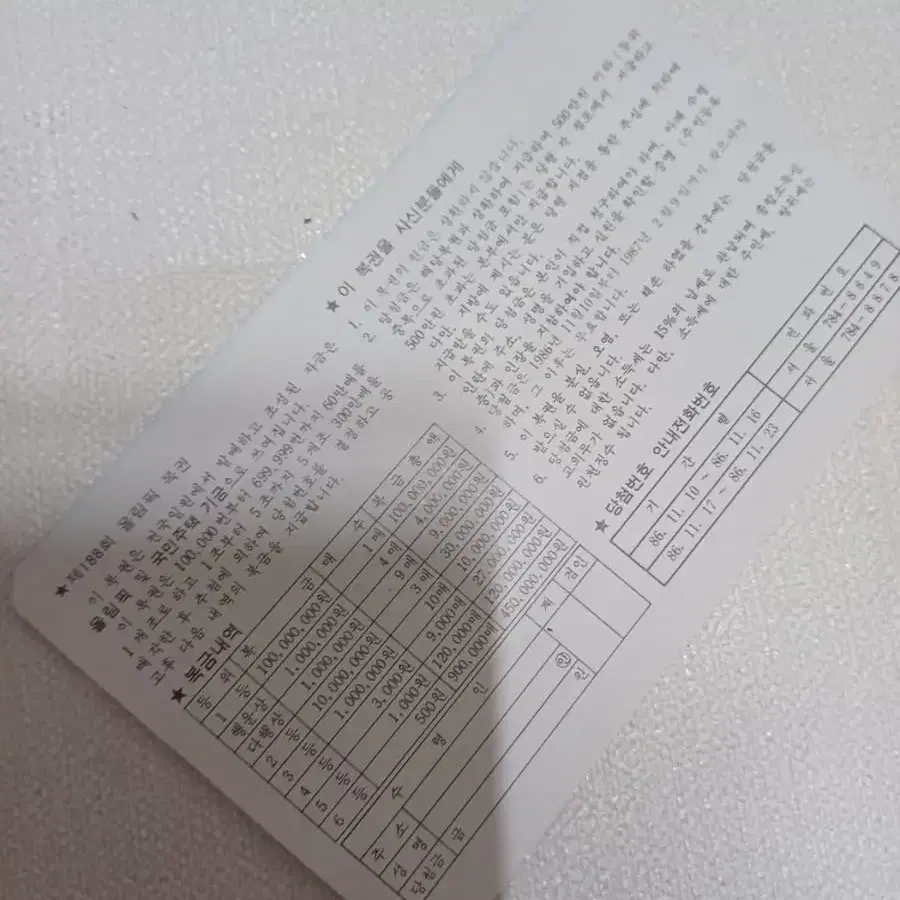 ★ 제188회 올림픽 복권
이 복권은 전국일원에서 발매하고 조성된 자금은
올림픽 및 국민주택 기금으로 쓰여집니다.
이 복권은 100,000번부터 699,999번까지 60만매를
1조로 하고 1조부터 5조까지 5개조 300만매를 발
추첨에 의하여 당첨번호를 결정하고 공
고후 다음 내용의 복금을 지급합니다.
★ 복금내역
등 위 복 금 매 수 복 금 총 액
1 등 100,000,000원 1매 100,000,000원
행운상 1,000,000원 4매 4,000,000원
다행상 1,000,000원 9매 9,000,000원
2 등 10,000,000원 3매 30,000,000원
3 등 1,000,000원 10매 10,000,000원
4 등 3,000원 9,000매 27,000,000원
5 등 1,000원 120,000매 120,000,000원
6 등 500원 900,000매 450,000,000원
수 령 인 계 검인
주 소
성 명 ㊞
당첨금 금 원
★ 이 복권을 사신분들에게
1. 이 복권의 원금은 상환하지 않습니다.
2. 당첨금은 해당복권과 상환하여 지급하며 500만원 이하(등위
중복으로 초과된 당첨금 포함)는 당행 각 점포에서 지급하고
500만원 초과는 본부에서만 지급합니다.
다만, 지방에 계시는 분은 당행 지점을 통한 추심에 의하여
지급받을 수도 있습니다.
3. 이 복권의 당첨금은 본인이 직접 청구하여야 하며, 아래 수령
인란에 주소, 성명을 기입하고 신원을 확인할 증명 (주민등록
증)과 인장을 지참하여야 합니다.
4. 당첨금은 1986년 11월10일부터 1987년 2월9일까지 찾으셔야
하며, 그 이후는 무효입니다.
5. 이 복권을 분실, 오염, 또는 훼손 하였을 경우에는 당첨금을
받으실수 없습니다.
6. 당첨금에 대한 소득세는 15%의 납세로 완납되며 종합소득신
고의무가 없습니다. 다만, 소득세에 대한 주민세, 방위세는
원천징수 됩니다.
★ 당첨번호 안내전화번호
기 간 별 전 화 번 호
86. 11. 10 ~ 86. 11. 16 서 울 784-8649
86. 11. 17 ~ 86. 11. 23 서 울 784-8878